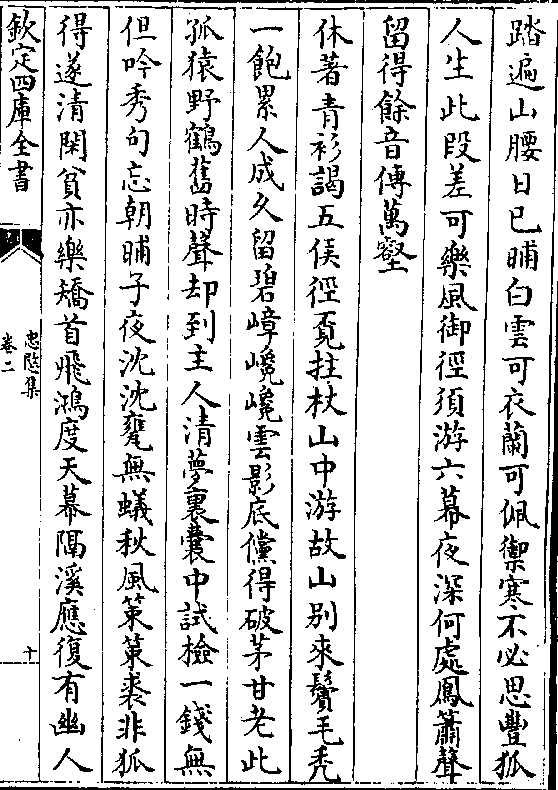 踏遍山腰日已晡白雲可衣蘭可佩禦寒不必思豐狐
人生此段差可樂風御徑須游六幕夜深何處鳳簫聲
留得餘音傳萬壑
休著青衫謁五侯徑覔拄杖山中游故山別來鬢毛禿
一飽累人成久留碧嶂巉巉雲影底儻得破茅甘老此
孤猿野鶴舊時聲却到主人清夢裏囊中試檢一錢無
但吟秀句忘朝晡子夜沈沈甕無蟻秋風策策裘非狐
得遂清閑貧亦樂矯首飛鴻度天幕隔溪應復有幽人
欽定四庫全書
忠愍集
卷二
十